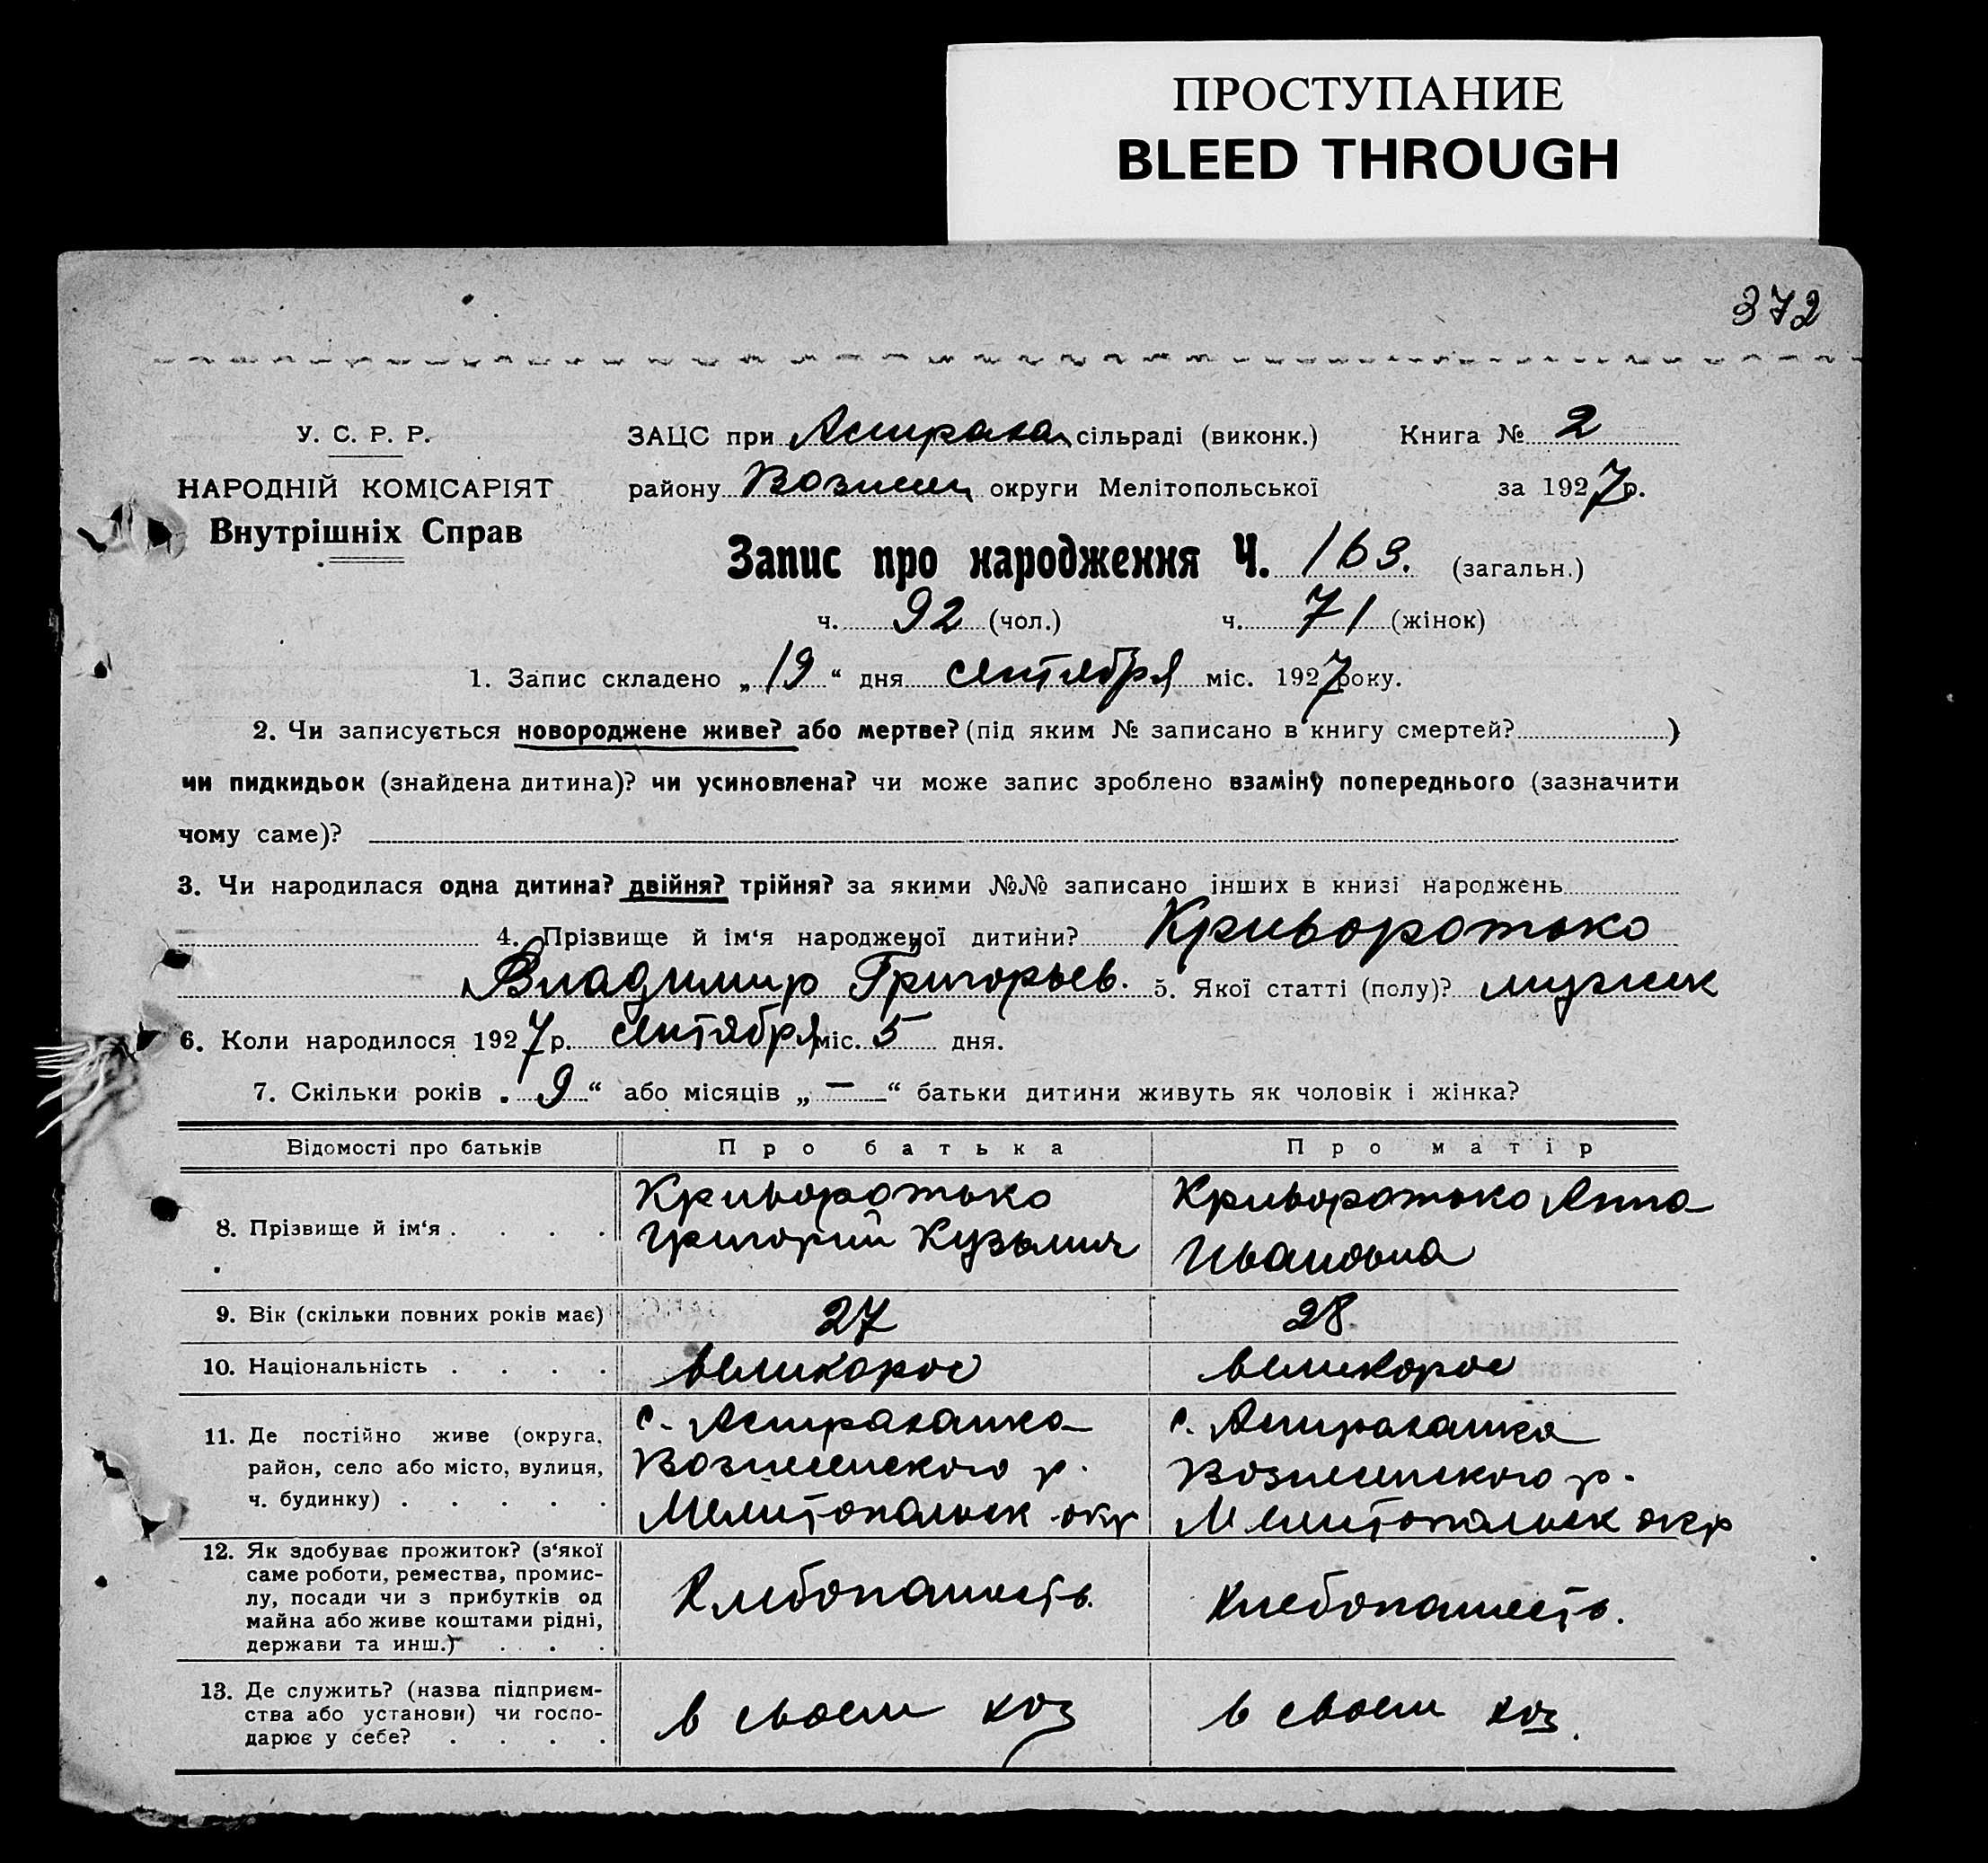 ПРОСТУПАНИЕ
BLEED THROUGH
372
У. С. Р. Р.
НАРОДНІЙ КОМІСАРІЯТ
Внутрішніх Справ
ЗАЦС при Астрахан сільраді (виконк.) Книга № 2
району Вознесен округи Мелітопольської за 1927 р.
Запис про народження Ч. 163. (загальн.)
ч. 92 (чол.) ч. 71 (жінок)
1. Запис складено „19“ дня сентября міс. 1927 року.
2. Чи записується новороджене живе? або мертве? (під яким № записано в книгу смертей? )
чи пидкидьок (знайдена дитина)? чи усиновлена? чи може запис зроблено взаміну попереднього (зазначити
чому саме)?
3. Чи народилася одна дитина? двійня? трійня? за якими №№ записано інших в книзі народжень
4. Прізвище й ім‘я народженої дитини? Криворотько
Владимир Григорьев. 5. Якої статті (полу)? мужеск
6. Коли народилося 1927 р. сентября міс. 5 дня.
7. Скільки років „9“ або місяців „—“ батьки дитини живуть як чоловік і жінка?
Відомості про батьків Про батька Про матір
8. Прізвище й ім‘я . . . .
Криворотько
Григорий Кузьмич
Криворотько Анна
Ивановна
9. Вік (скільки повних років має) 27 28
10. Національність . . . . великорос великорос
11. Де постійно живе (округа,
район, село або місто, вулиця,
ч. будинку) . . . . .
с. Астраханка
Вознесенского р.
Мелитопольск окр
с. Астраханка
Вознесенского р.
Мелитопольск окр
12. Як здобуває прожиток? (з‘якої
саме роботи, ремества, промис-
лу, посади чи з прибутків од
майна або живе коштами рідні,
держави та инш.) . . .
Хлебопашеств.
Хлебопашеств.
13. Де служить? (назва підприєм-
ства або установи) чи госпо-
дарює у себе? . . . .
в своем хоз
в своем хоз.